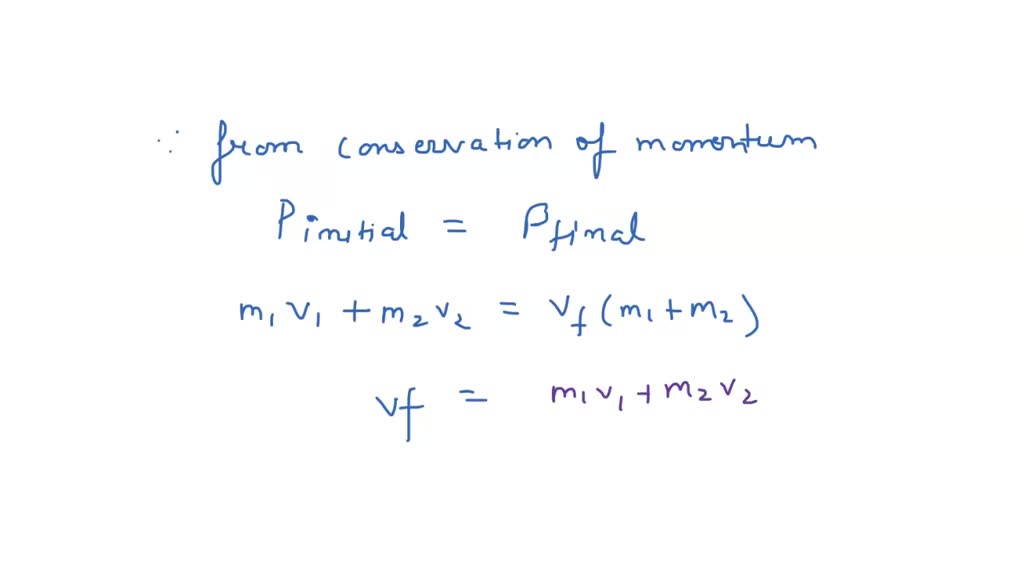 ∵ from conservation of momentum
Pinitial = Pfinal
m₁v₁ + m₂v₂ = v_f (m₁ + m₂)
vf = m₁v₁ + m₂v₂